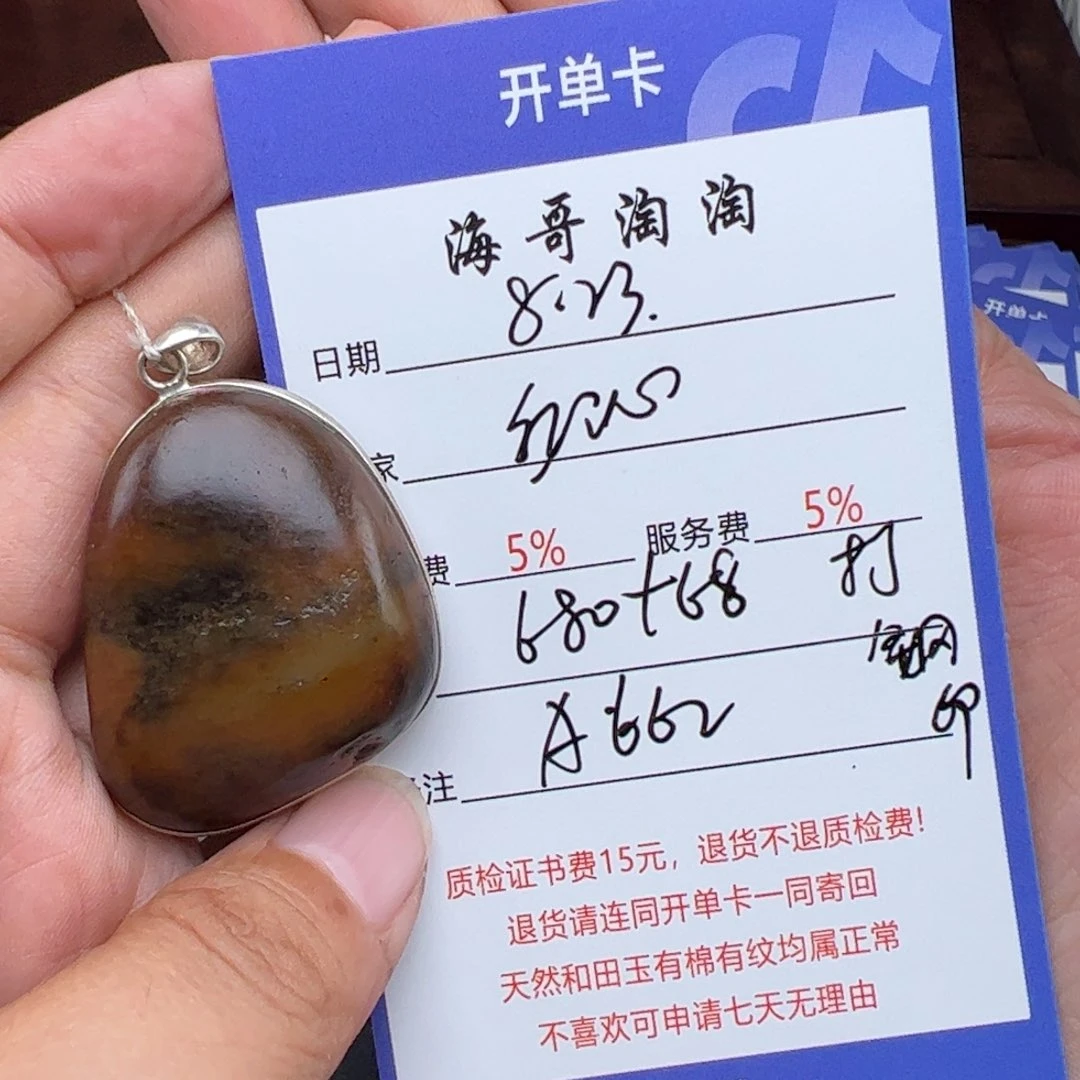 开单卡
海哥淘淘
日期 8.23.
家
费 5% 服务费 5%
680+68 打
A662
注
质检证书费15元，退货不退质检费！
退货请连同开单卡一同寄回
天然和田玉有棉有纹均属正常
不喜欢可申请七天无理由
开单卡